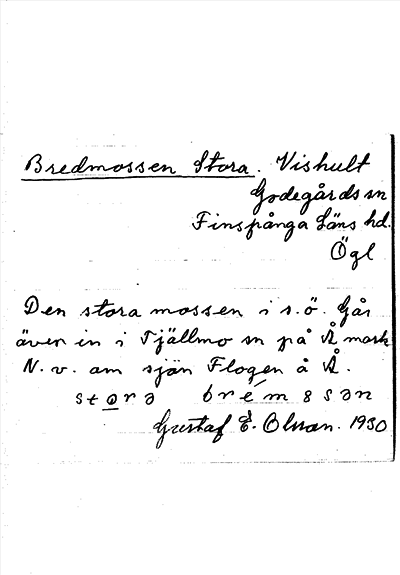 Bredmossen Stora. Vishult
Godegårds sn
Finspånga Läns hd.
Ögl
Den stora mossen i s.ö. Går
även in i Tjällmo sn på Å mark
N.v. om sjön Flogen å Å.
stọrə brémssən
Gustaf E. Olsson. 1930